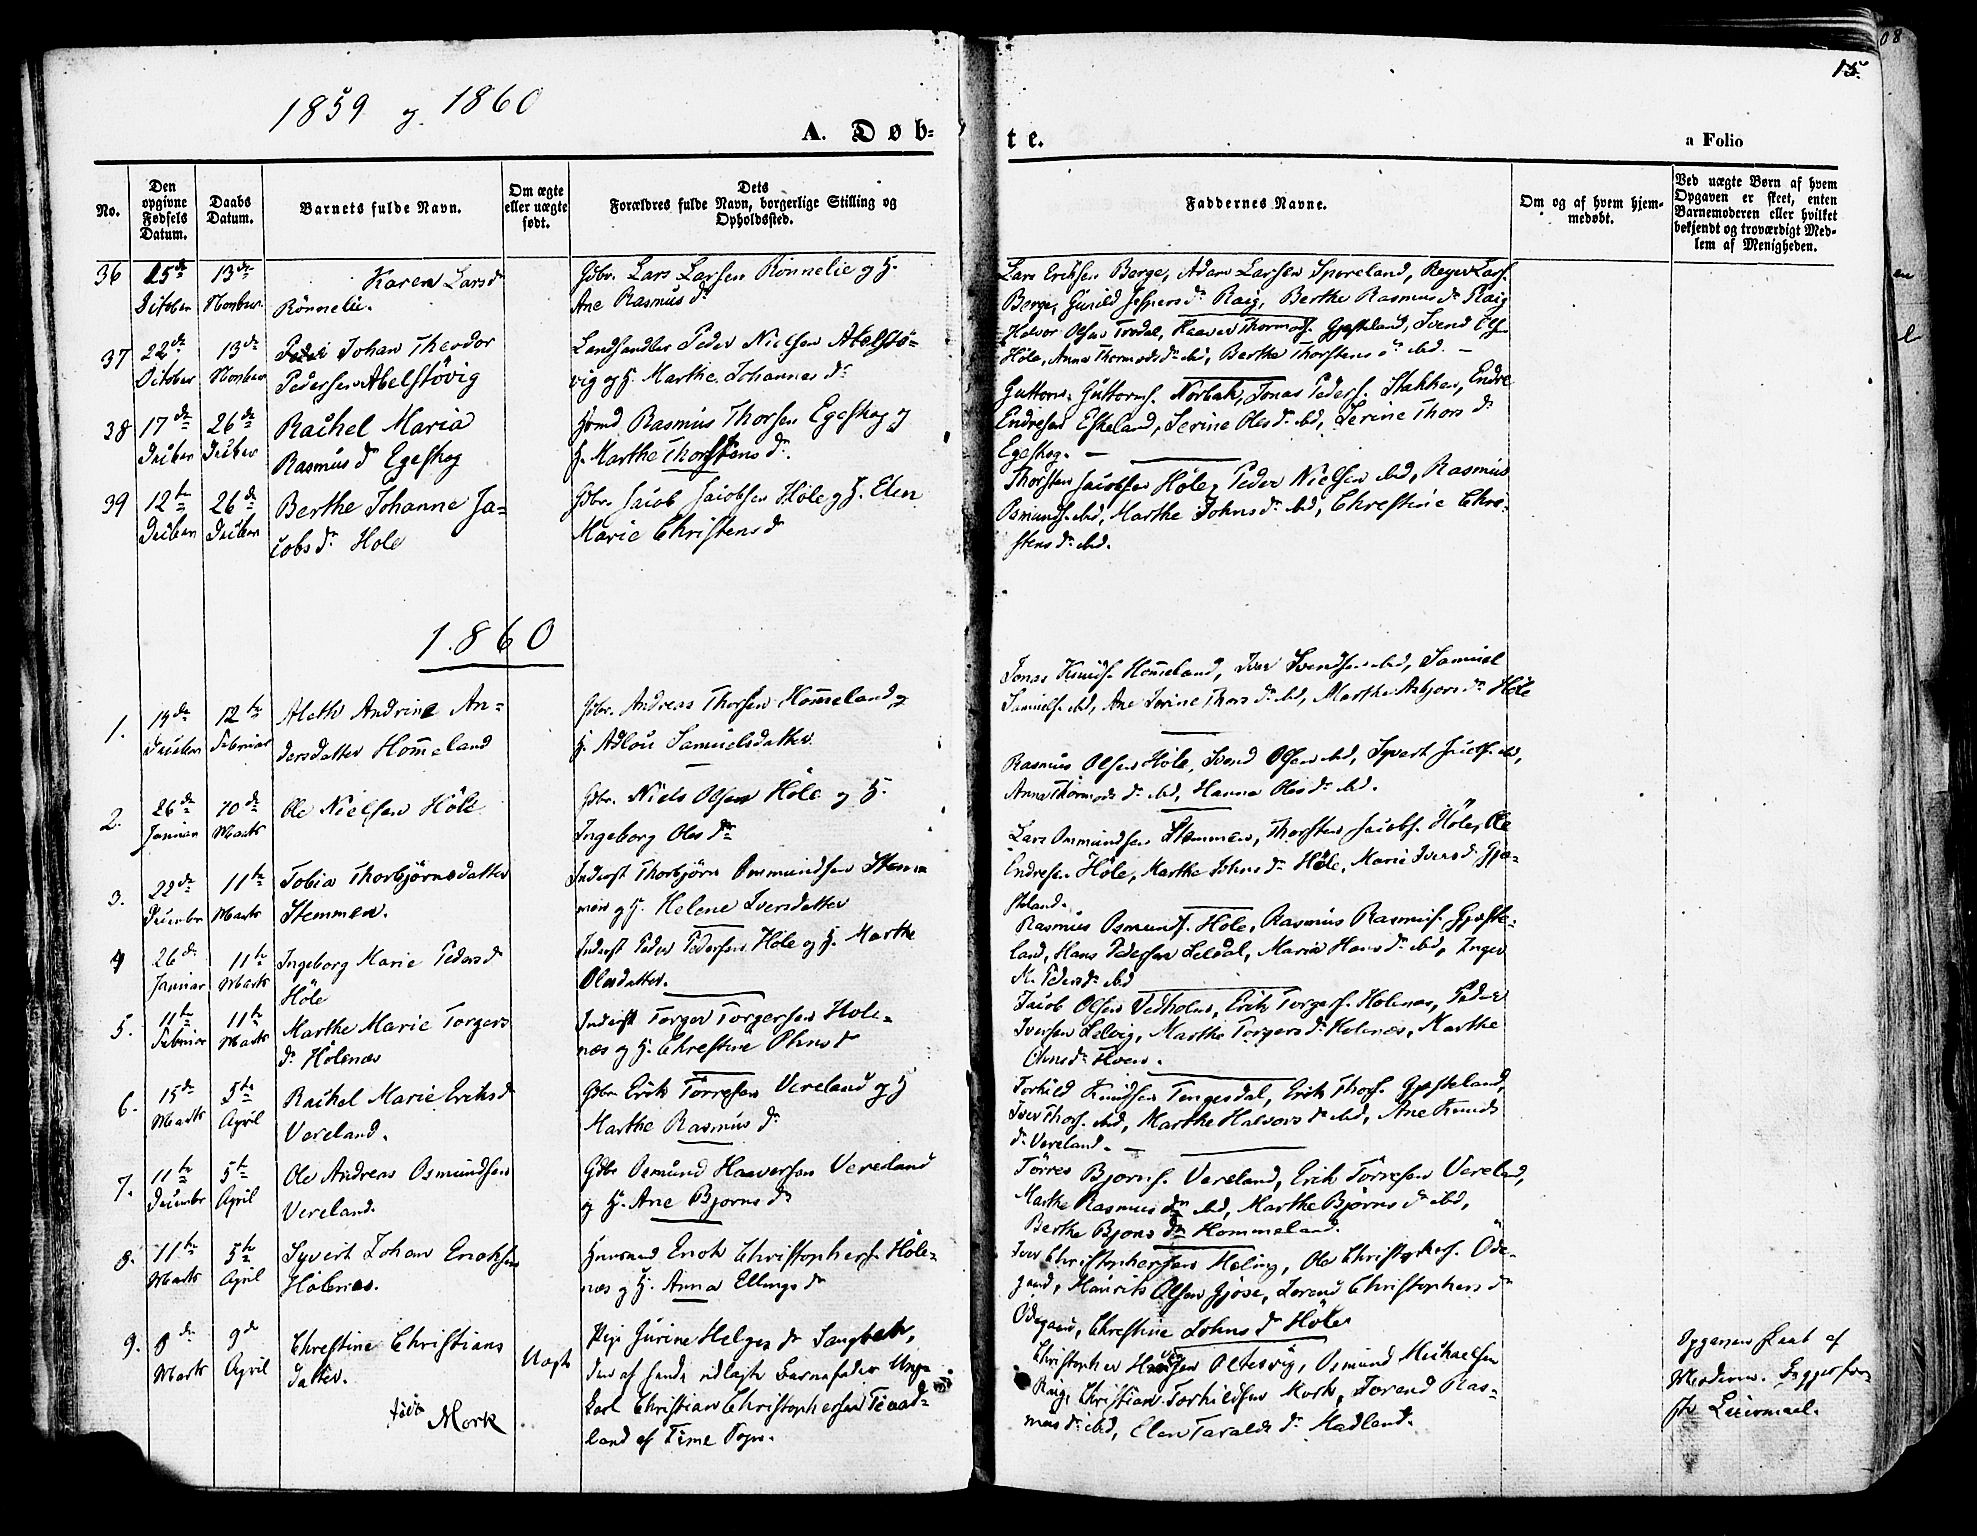 08
15.
1859 og 1860
A. Døb-
te.
a Folio
No.
Den opgivne Fødsels Datum.
Daabs Datum.
Barnets fulde Navn.
Om ægte eller uægte født.
Dets Forældres fulde Navn, borgerlige Stilling og Opholdssted.
Faddernes Navne.
Om og af hvem hjemmedøbt.
Ved uægte Børn af hvem Opgaven er skeet, enten Barnemoderen eller hvilket bekjendt og troværdigt Medlem af Menigheden.
36 15de October 13de Novber
Karen Larsd
Rönnelie.
Gdbr. Lars Larsen Rönnelie og H.
Ane Rasmusdr
Lars Eriksen Berge, Adam Larsen Sporeland, Reyer Lars.
Berge, Gunild Jespersdr Raig, Berthe Rasmusdr Raig
37 22de October 13de Novber
Johan Theodor
Pedersen Abelstövig
Landhandler Peder Nielsen Abelstö-
vig og H. Marthe Johannesdr
Halvor Olsen Trodal, Haaver Thormods. Gjesteland, Svend Ols
Höle, Anna Thormodsdr ibid, Berthe Thorstensdr ibid. -
38 17de Decber 26de Decber
Rachel Maria
Rasmusdr Egeskog
Hmd Rasmus Thorsen Egeskog og
H. Marthe Thorstensdr.
Guttorm Guttorms. Norbak, Jonas Peders. Stakken, Endre
Endresen Eskeland, Serine Olesdr ibd, Serine Thorsdr
Egeskog. -
39 12te Decber 26de Decber
Berthe Johanne Ja-
cobsdr Hole
Gdbr. Jacob Jacobsen Höle og H. Elen
Marie Christensdr
Thorsten Jacobsen Höle, Peder Nielsen ibd, Rasmus
Osmunds. ibid, Marthe Johnsdr ibd, Chrestine Chri-
stensdr ibd.
1860
1. 19de Decber 12te Februar
Aleth Andrine An-
dersdatter Hommeland
Gdbr. Andreas Thorsen Hommeland og
H. Adlou Samuelsdatter
Jonas Knuds. Hommeland, Iver Svendsen ibd, Samuel
Samuels. ibd, Ane Serine Thorsdr ibd, Marthe Asbjorsdr Höle
2. 26de Januar 10de Marts
Ole Nielsen Höle
Gdbr. Niels Olsen Höle og H.
Ingeborg Olesdr
Rasmus Olsen Höle, Svend Olsen ibd, Syvert Jacobs. ibd,
Anna Thormodsdr ibd, Hanna Olesdr ibd.
3. 22de Decembr 11te Marts
Tobia Thorbjörnsdatter
Stemmen.
Inderst Thorbjörn Ommundsen Stem-
men og H. Helene Iversdatter
Lars Ommundsen Stemmen, Thorsten Jacobs. Höle, Ole
Endresen Höle, Marthe Johnsdr Höle, Marie Iversd. Gje-
steland.
4 26de Januar 11te Marts
Ingeborg Marie Pedersd
Höle
Inderst Peder Pedersen Höle og H. Marthe
Olesdatter.
Rasmus Osmunds. Höle, Rasmus Rasmus. Gjeste-
land, Hans Pedersen Seldal, Maria Hansdr ibd, Inger
M. Pedersdr ibd
5. 11te Februar 11te Marts
Marthe Marie Torgers
dr Hölenæs
Inderst Torger Torgersen Hole-
næs og H. Chrestine Ohnsdr
Jacob Olsen Vedholm, Erik Torgers. Holenæs, Peder
Iversen Selvig, Marthe Torgersdr Holenæs, Marthe
Ohnsdr Hoen.
6. 15de Marts 5te April
Rachel Marie Eriksd
Vereland.
Gdbr. Erik Törresen Vereland og H
Marthe Rasmusdr
Torkild Knudsen Tengesdal, Erik Thors. Gjesteland,
Iver Thors. ibd, Marthe Halvorsdr ibd, Ane Knuds
dr Vereland. -
7. 11te Decembr 5te April
Ole Andreas Osmundsen
Vereland.
Gdbr Osmund Haaversen Vereland
og H. Ane Bjornsdr
Törres Bjorns. Vereland, Erik Törresen Vereland,
Marthe Rasmusdr ibd, Marthe Bjornsdr ibd,
Berthe Bjornsdr Hommeland.
8. 11te Marts 5te April
Syvert Johan Enoksen
Hölenæs.
Huusmd Enok Christophers. Höle-
næs og H. Anna Ellingsdr
Iver Christophersen Heling, Ole Christophers. Öde-
gaard, Haurits Olsen Gjöse, Lorend Christophersdr
Ödegaard, Chrestine Johnsdr Höle
9. 8de Marts 9de April
Chrestine Christians
Datter.
født Mork
Uægte
Pige Gurine Helgesdr Sangbak,
den af hende udlagte Barnefader Unge
Karl Christian Christophersen Tinad-
land af Time Sogn.
Christopher Hansen Oltesvig, Osmund Michaelsen
Raig, Christian Torkildsen Mork, Torend Ras-
musdr ibd, Elen Taraldsdr Madland.
Opgaven skeet af
Moderen. Begges för-
ste Leiermaal.